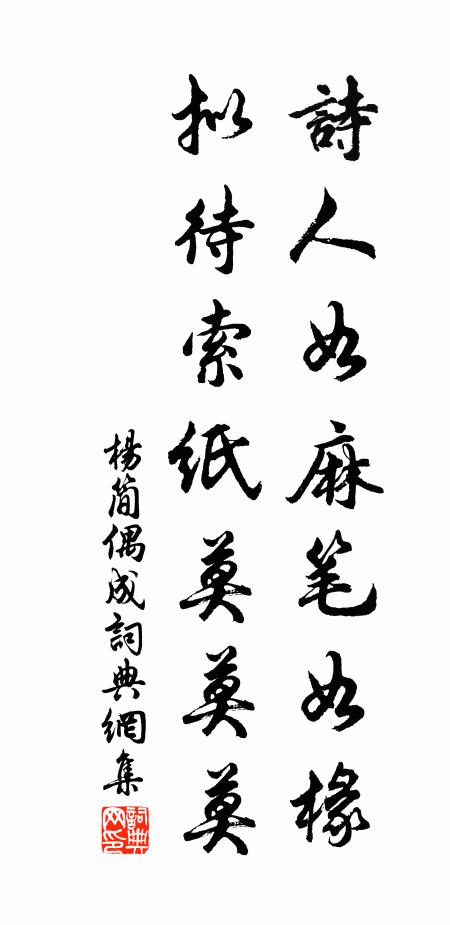 詩人如麻笔如椽
拟待索纸莫莫莫
楊简偶成詞典網集
詞典网印